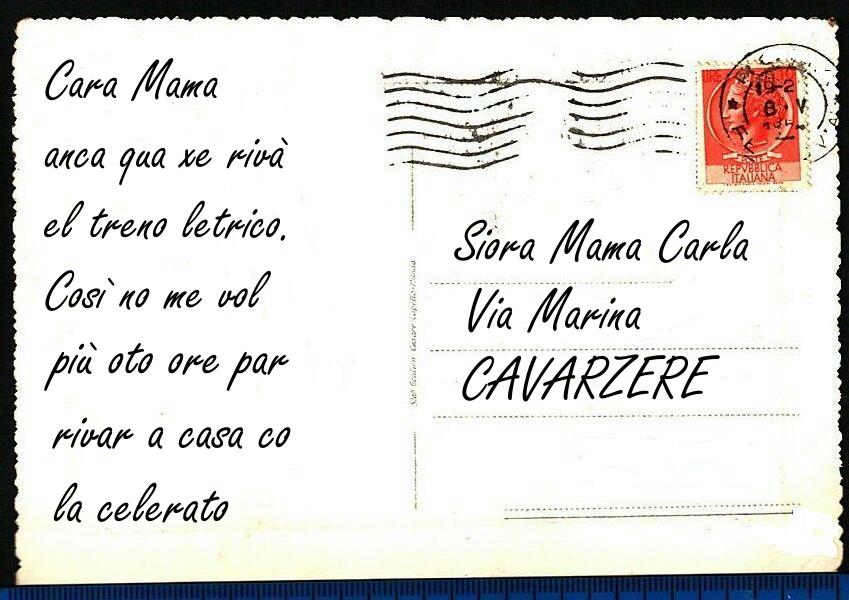 Cara Mama
anca qua xe rivà
el treno letrico.
Così no me vol
più oto ore par
rivar a casa co
la celerato
REPVBBLICA
ITALIANA
Siora Mama Carla
Via Marina
CAVARZERE